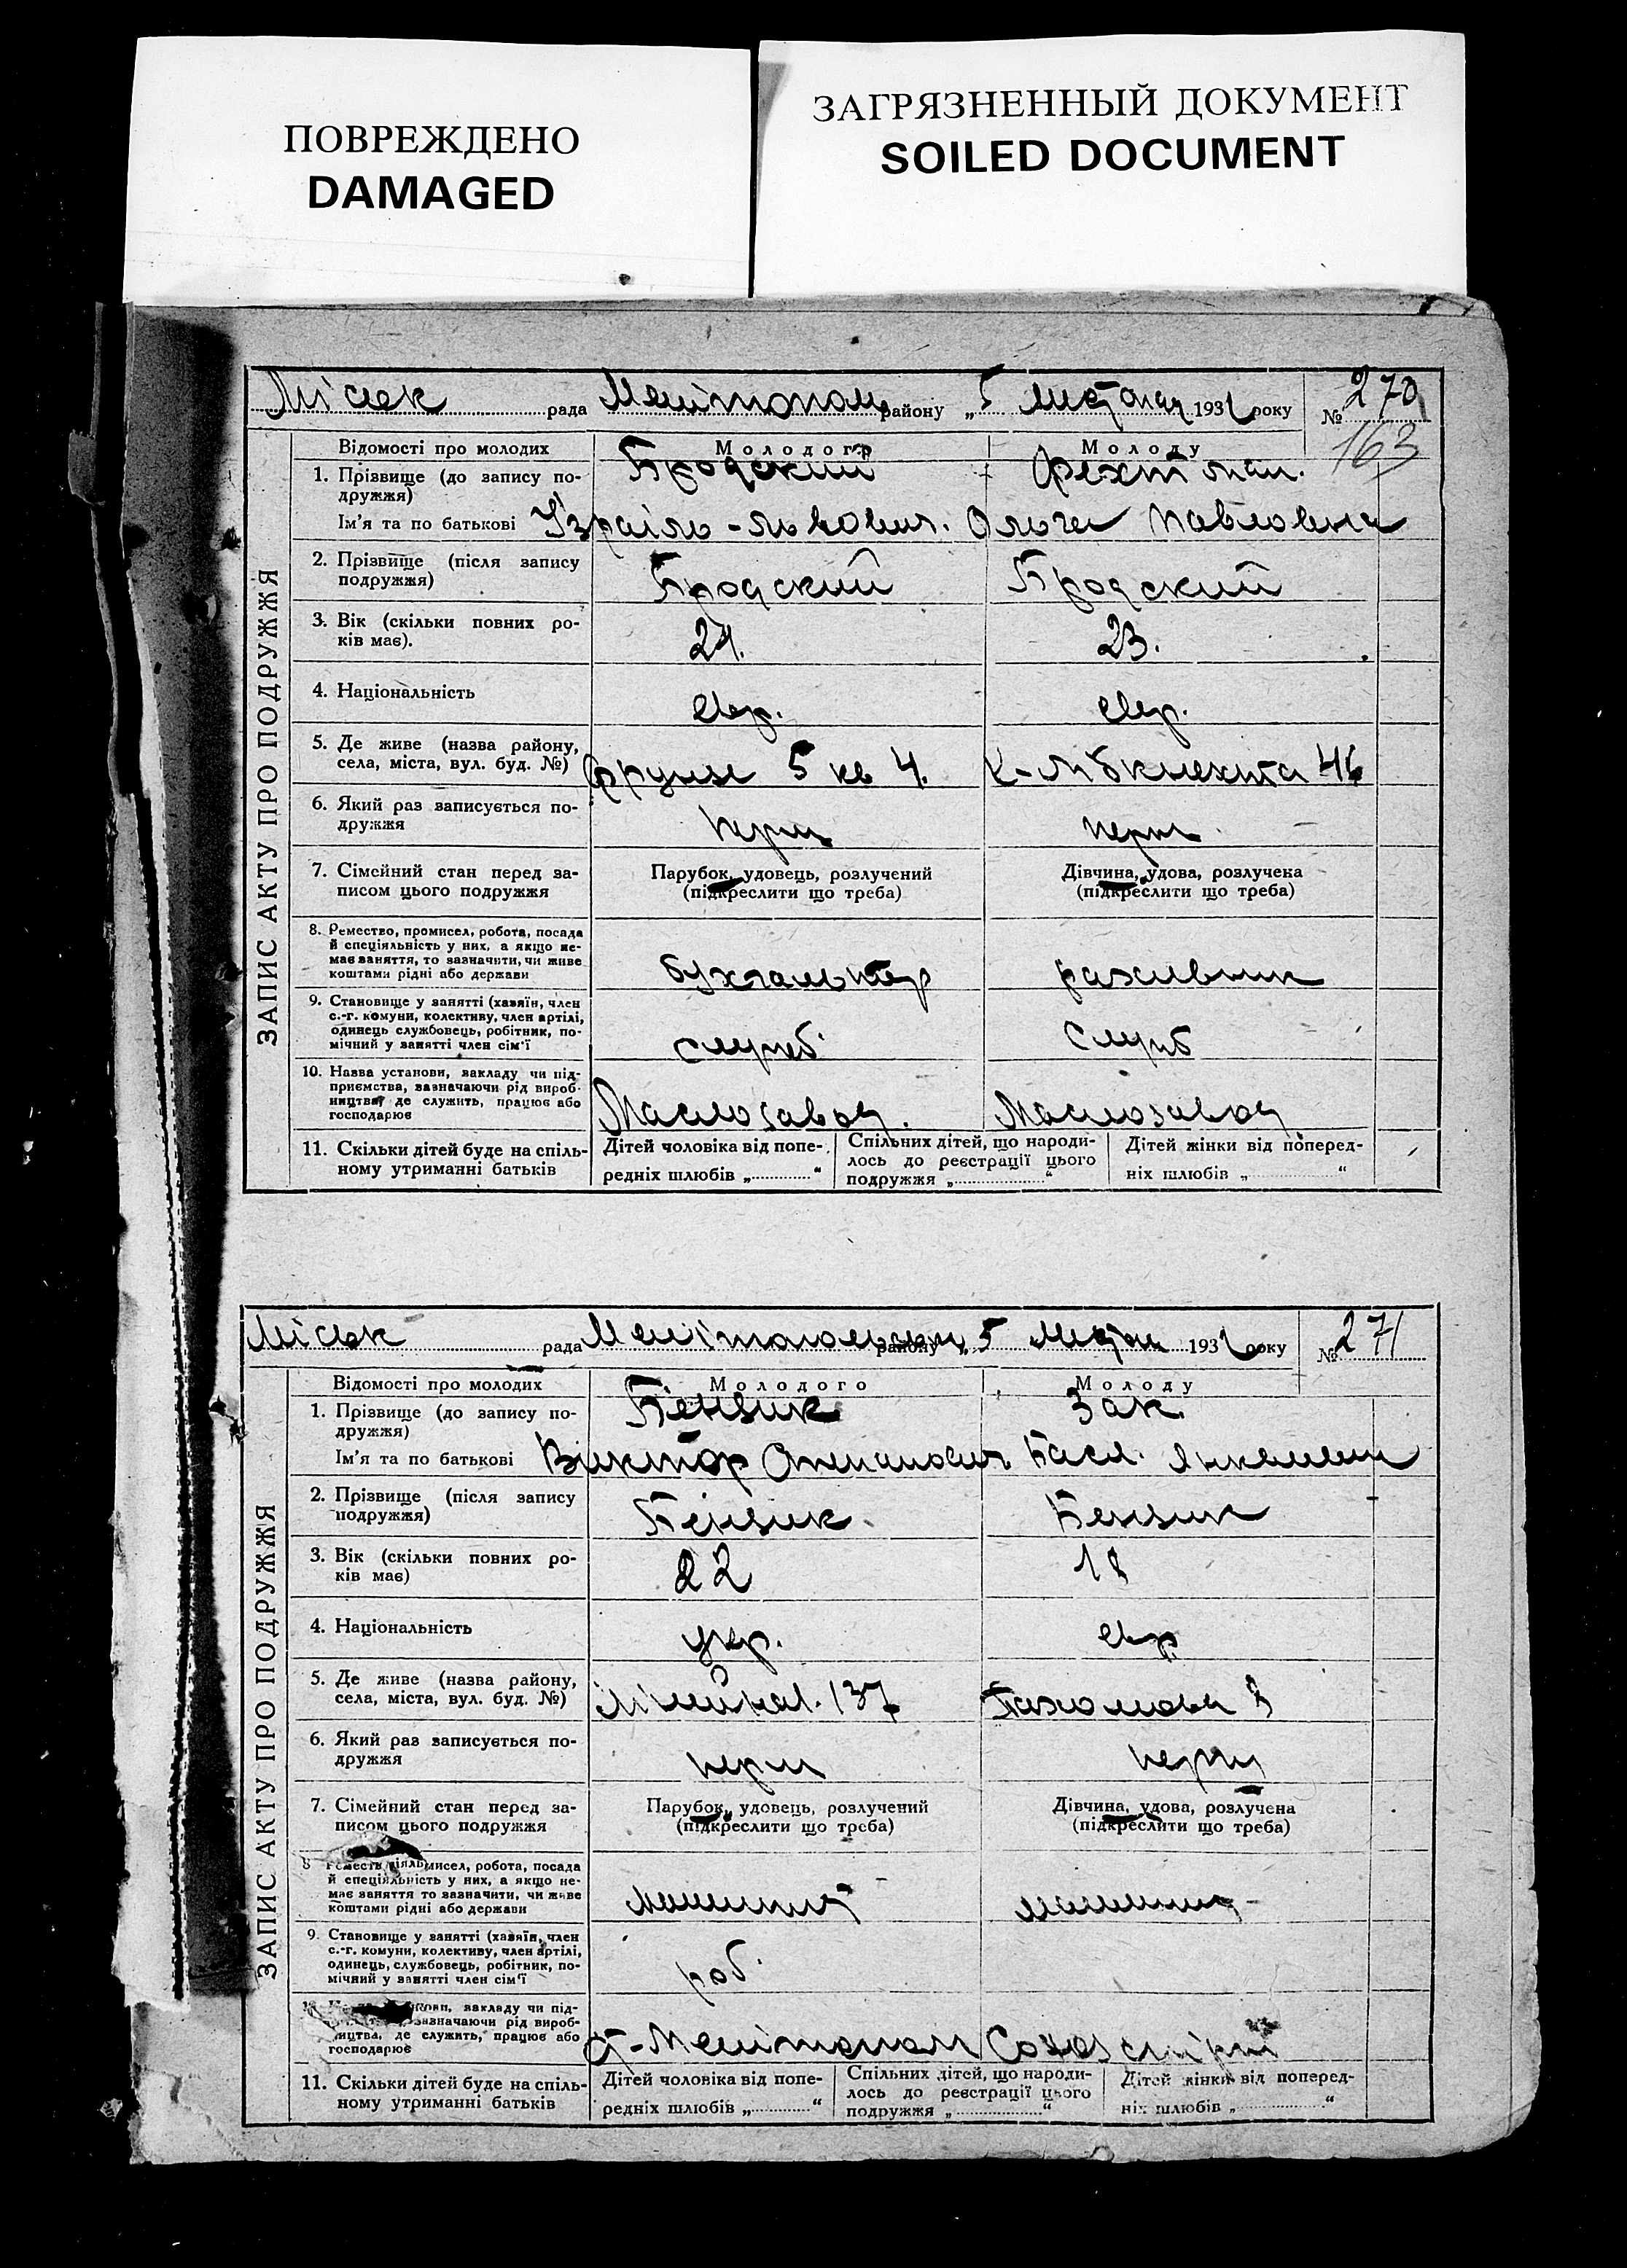 ПОВРЕЖДЕНО
DAMAGED
ЗАГРЯЗНЕННЫЙ ДОКУМЕНТ
SOILED DOCUMENT
Міськ рада Мелітополь району „5 193 року № 270
163
ЗАПИС АКТУ ПРО ПОДРУЖЖЯ
Відомості про молодих Молодого Молоду
1. Прізвище (до запису по- Бродский Фехтман.
дружжя)
Ім'я та по батькові Ізраіль-Львович. Ольга Павловна
2. Прізвище (після запису
подружжя) Бродский Бродский
3. Вік (скільки повних ро-
ків має). 24. 23.
4. Національність евр. евр.
5. Де живе (назва району,
села, міста, вул. буд. №) Фрунзе 5 кв 4. К-Лібкнехта 46
6. Який раз записується по-
дружжя перш перш
7. Сімейний стан перед за- Парубок, удовець, розлучений Дівчина, удова, розлучена
писом цього подружжя (підкреслити що треба) (підкреслити що треба)
8. Ремество, промисел, робота, посада
й спеціяльність у них, а якщо не-
має заняття, то зазначити, чи живе
коштами рідні або держави бухгальтер
9. Становище у занятті (хазяїн, член
с.-г. комуни, колективу, член артілі,
одинець службовець, робітник, по-
мічний у занятті член сім'ї служб. служб
10. Назва установи, закладу чи під-
приємства, зазначаючи рід вироб-
ництва, де служить, працює або
господарює Маслозавод. Маслозавод
11. Скільки дітей буде на спіль- Дітей чоловіка від попе- Спільних дітей, що народи- Дітей жінки від поперед-
ному утриманні батьків редніх шлюбів „ “ лось до реєстрації цього ніх шлюбів „ “
подружжя „ “
Міськ рада району „5 193 року № 271
ЗАПИС АКТУ ПРО ПОДРУЖЖЯ
Відомості про молодих Молодого Молоду
1. Прізвище (до запису по- Бензик Зак.
дружжя)
Ім'я та по батькові Виктор Степанович
2. Прізвище (після запису
подружжя) Бензик Бензик
3. Вік (скільки повних ро-
ків має) 22 18
4. Національність укр. евр
5. Де живе (назва району,
села, міста, вул. буд. №) 137
6. Який раз записується по-
дружжя перш перш
7. Сімейний стан перед за- Парубок, удовець, розлучений Дівчина, удова, розлучена
писом цього подружжя (підкреслити що треба) (підкреслити що треба)
8 мисел, робота, посада
й спеціяльність у них, а якщо не-
має заняття то зазначити, чи живе
коштами рідні або держави
9. Становище у занятті (хазяїн, член
с.-г. комуни, колективу, член артілі,
одинець, службовець, робітник, по-
мічний у занятті член сім'ї роб.
закладу чи під-
зазначаючи рід вироб-
ництва, де служить, працює або
господарює ст-Мелітополь
11. Скільки дітей буде на спіль- Дітей чоловіка від попе- Спільних дітей, що народи- Дітей жінки від поперед-
ному утриманні батьків редніх шлюбів „ “ лось до реєстрації цього ніх шлюбів „ “
подружжя „ “